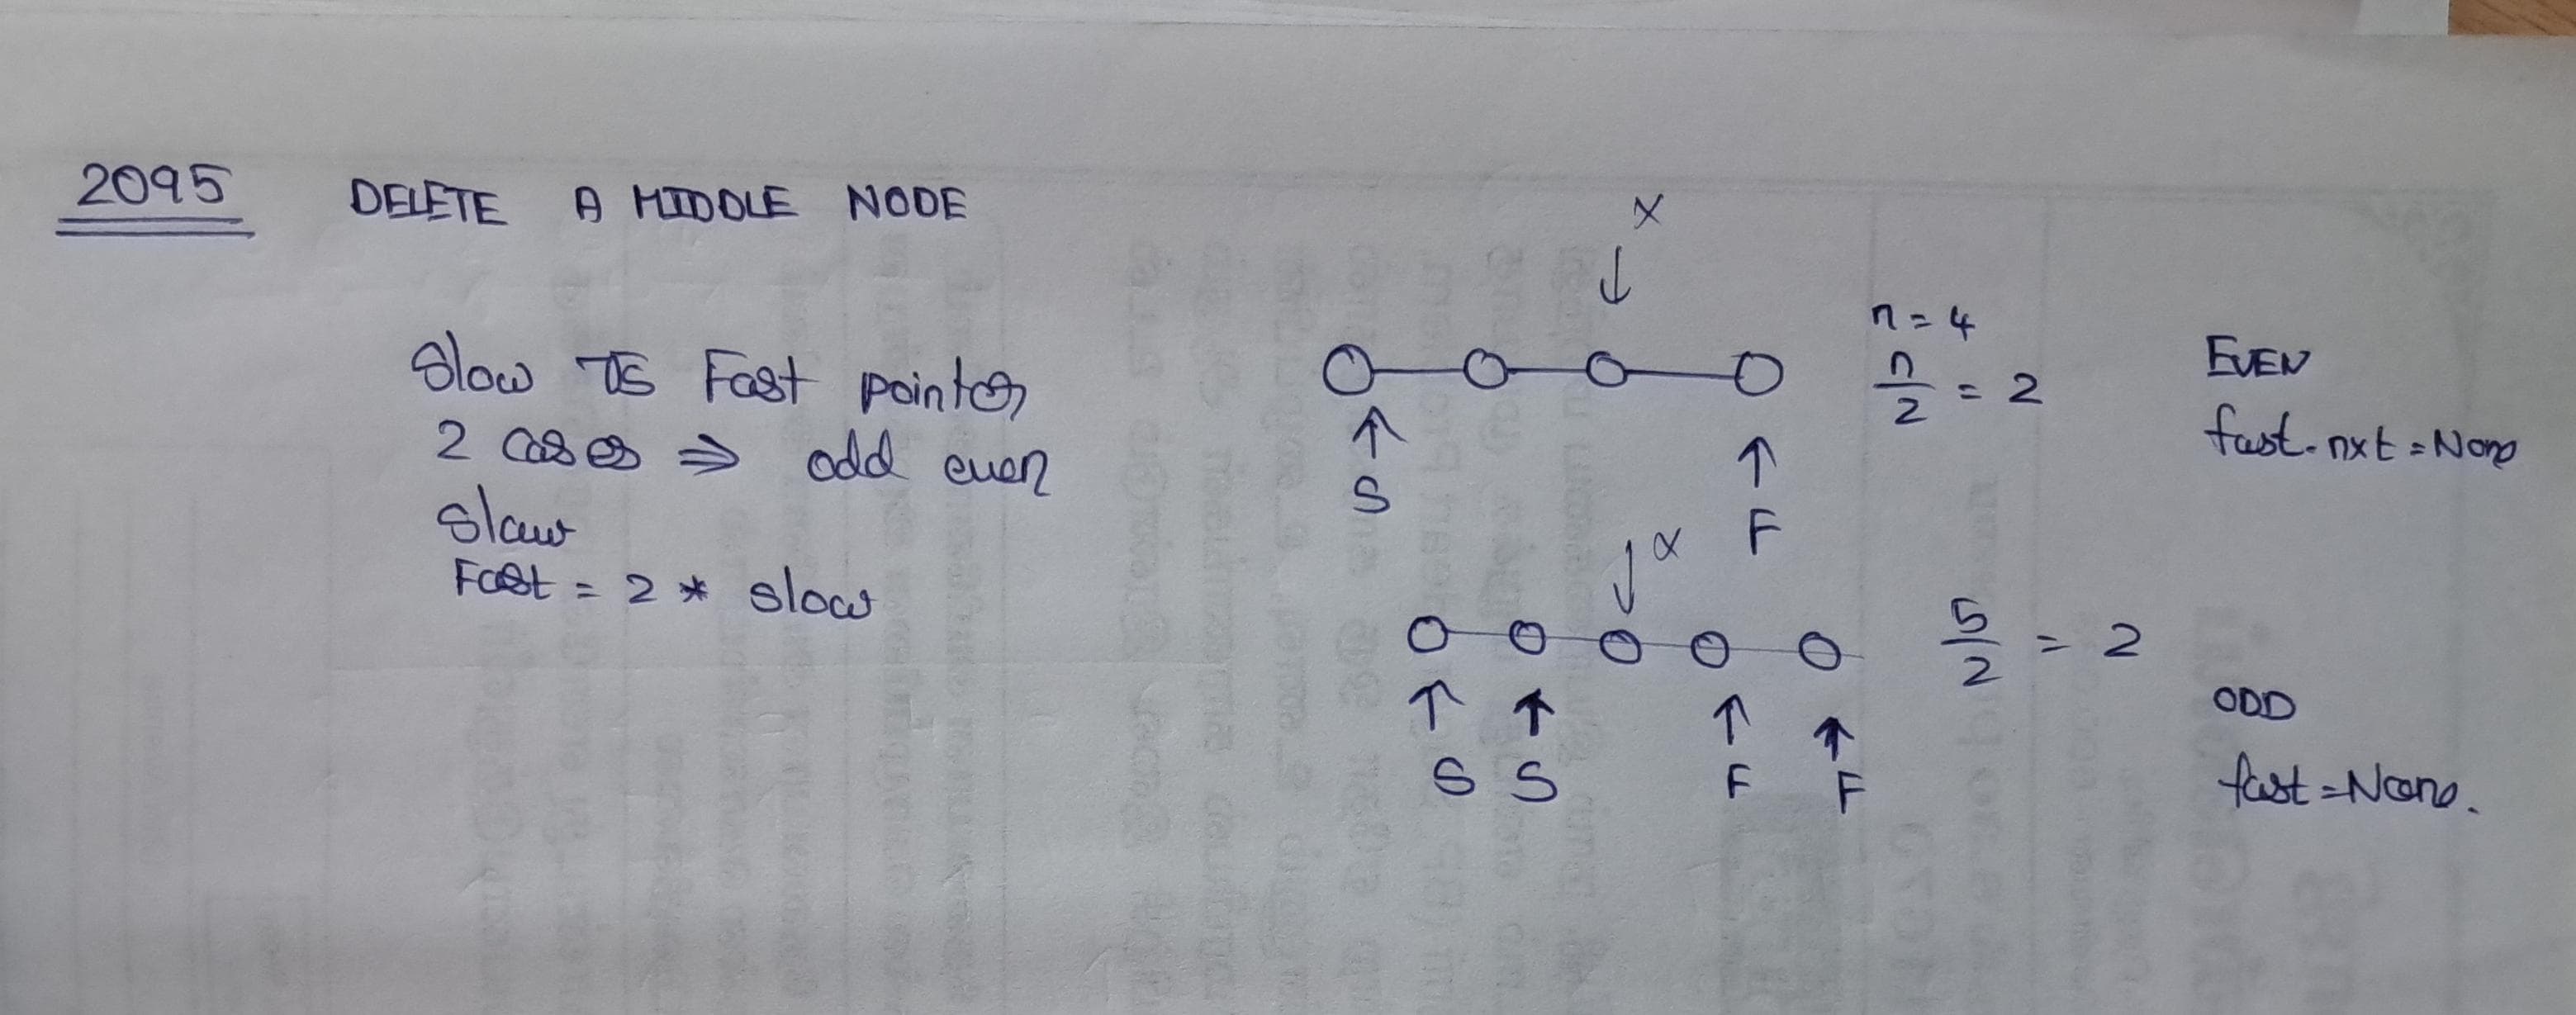 2095 DELETE A MIDDLE NODE
Slow Fast pointer
2 cases ⇒ odd even
Slow
Fast = 2 * slow
X
n = 4
n/2 = 2
EVEN
fast.nxt = None
S
F
X
5/2 = 2
ODD
fast = None.
S S F F